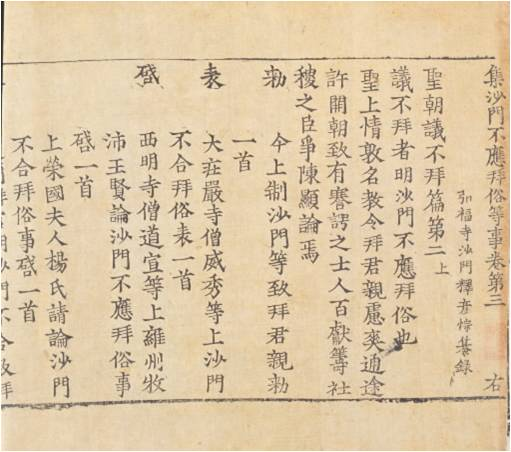 集沙門不應拜俗等事卷第三 右
弘福寺沙門釋彥悰纂録
聖朝議不拜篇第二上
議不拜者明沙門不應拜俗也
聖上情敦名教令拜君親慮爽通途
許開朝致有謇諤之士人百獻籌社
稷之臣爭陳顯論焉
勑 今上制沙門等致拜君親勑
一首
表 大莊嚴寺僧威秀等上沙門
不合拜俗表一首
啓 西明寺僧道宣等上雍州牧
沛王賢論沙門不應拜俗事
啓一首
上榮國夫人楊氏請論沙門
不合拜俗事啓一首